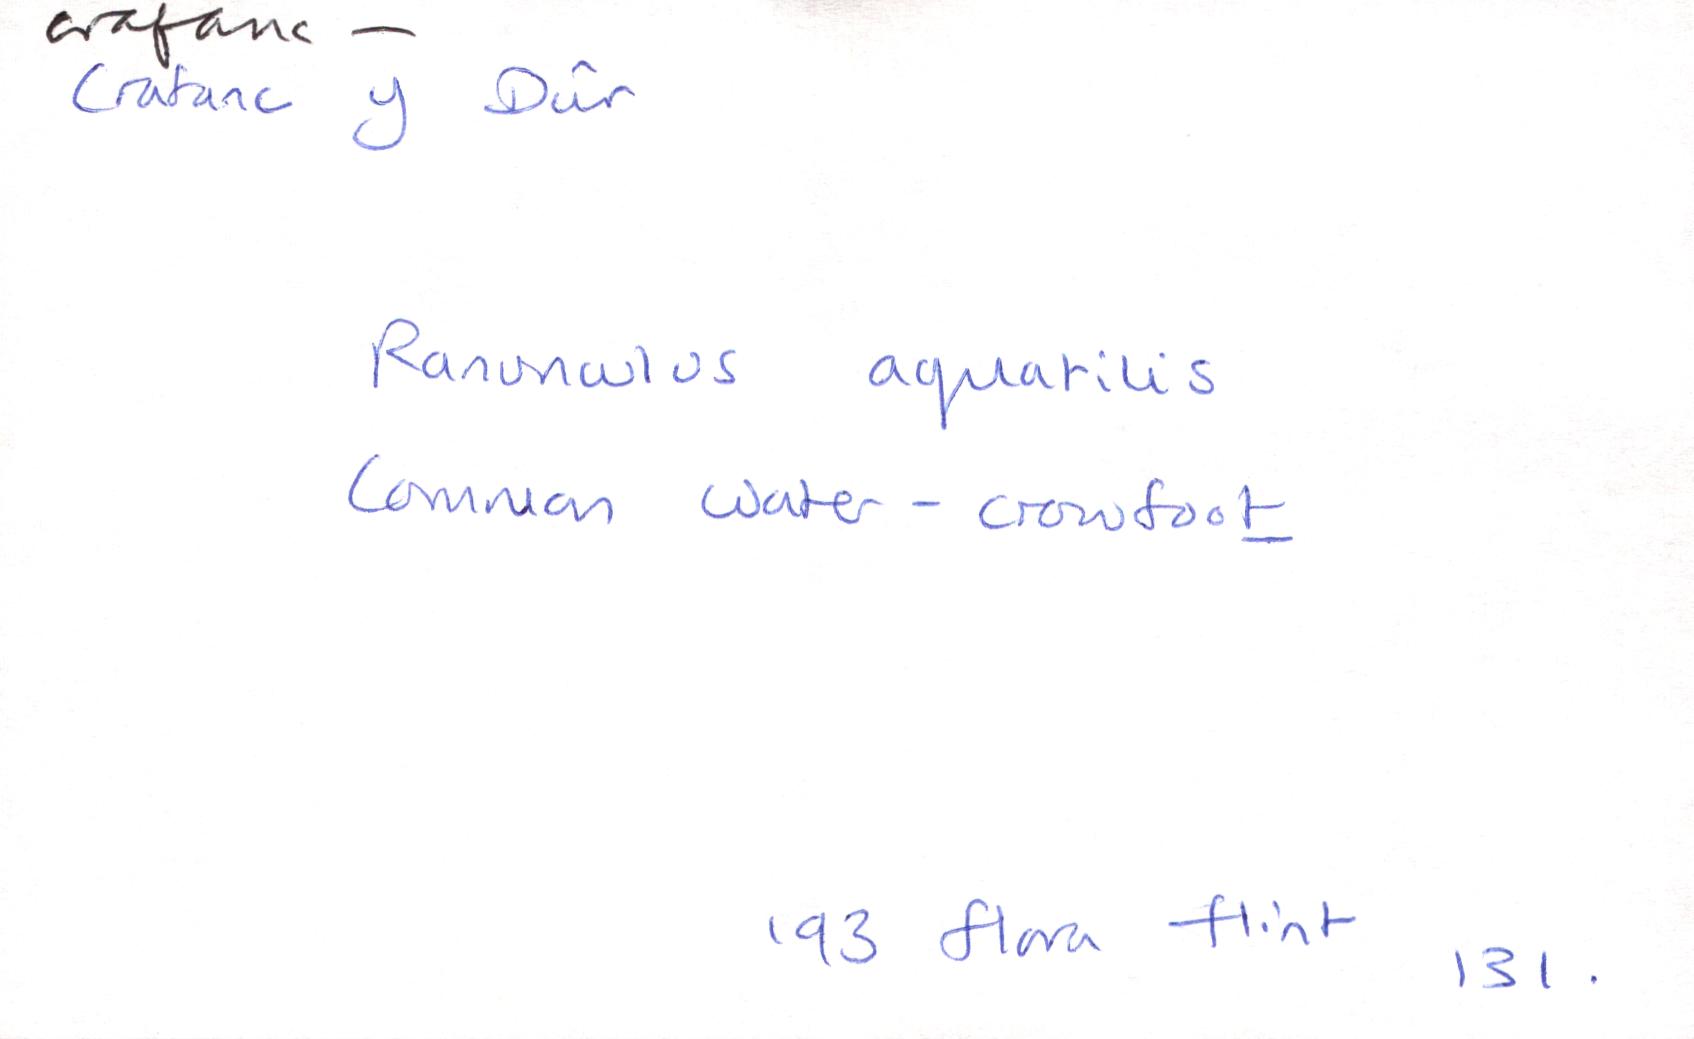 crafanc —
Crafanc y Dŵr
Ranunculus aquatilis
Common water-crowfoot
193 flora flint 131.